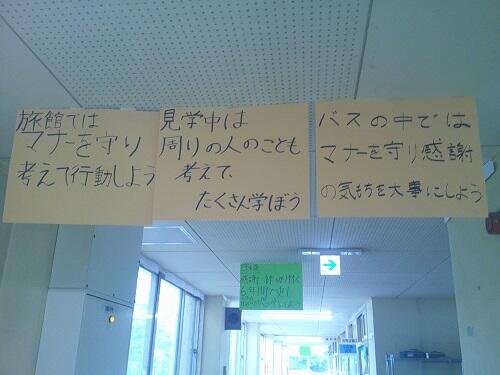 旅館では
マナーを守り
考えて行動しよう
見学中は
周りの人のことも
考えて、
たくさん学ぼう
バスの中では
マナーを守り感謝
の気もちを大事にしよう